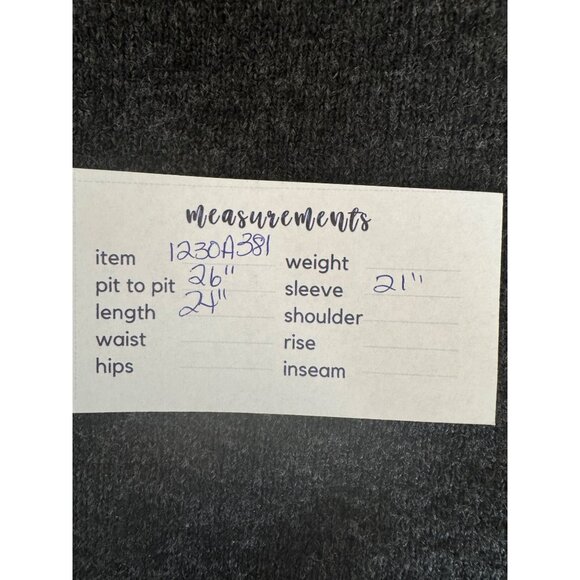 measurements
item 1230A381
pit to pit 26"
length 24"
waist
hips
weight
sleeve 21"
shoulder
rise
inseam